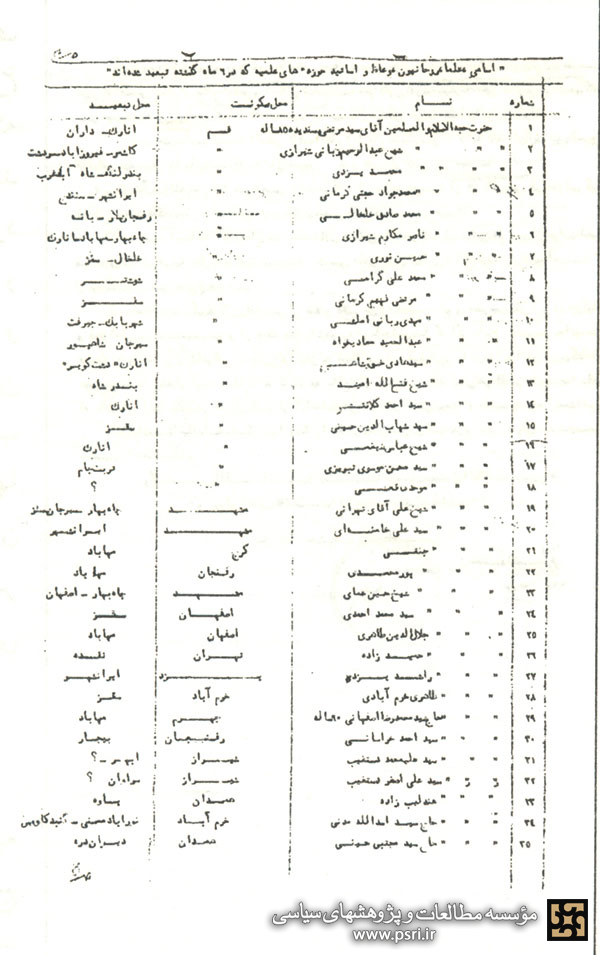 " اسامی علما و روحانیون و وعاظ و اساتید حوزه های علمیه که در ۶ ماه گذشته تبعید شده اند "
شماره نام محل سکونت محل تبعید
۱ حضرت حجه الاسلام والمسلمین آقای سید مرتضی پسندیده ۸۵ ساله قم انارک - داران
۲ " " " شیخ عبدالرحیم ربانی شیرازی " کاشمر - فیروزآباد - سردشت
۳ " " " محمد یزدی " بندرلنگه - شاه آباد غرب
۴ " " " محمدجواد حجتی کرمانی " ایرانشهر - سنندج
۵ " " " محمد صادق خلخالی " رفسنجان - لار - بانه
۶ " " " ناصر مکارم شیرازی " چاه بهار - مهاباد - انارک
۷ " " " حسین نوری " خلخال - سقز
۸ " " " محمد علی گرامی " شوشتر
۹ " " " مرتضی فهیم کرمانی " سقز
۱۰ " " " مهدی ربانی املشی " شهربابک - جیرفت
۱۱ " " " عبدالمجید معادیخواه " سیرجان
۱۲ " " " سید هادی خسروشاهی " انارک " دشت کویر "
۱۳ " " " شیخ فتح الله امید " بندر شاه
۱۴ " " " سید احمد کلانتر " انارک
۱۵ " " " سید شهاب الدین حسینی " سقز
۱۶ " " " شیخ عباس " انارک
۱۷ " " " سید محسن موسوی تبریزی " تربتجام
۱۸ " " " موحدی قمی " ؟
۱۹ " " " شیخ علی آقای تهرانی مشهد چاه بهار - سیرجان سقز
۲۰ " " " سید علی خامنه ای مشهد ایرانشهر
۲۱ " " " جنفی کرج مهاباد
۲۲ " " " پورمحمدی رفسنجان مهاباد
۲۳ " " " شیخ حسین عمادی مشهد چاه بهار - اصفهان
۲۴ " " " سید محمد احمدی اصفهان سقز
۲۵ " " " جلال الدین طاهری اصفهان مهاباد
۲۶ " " " حمید زاده تهران نقده
۲۷ " " " راشد یزدی یزد ایرانشهر
۲۸ " " " طاهری خرم آبادی خرم آباد سقز
۲۹ " " " حاج سید محمدرضا اصفهانی ۶۰ ساله جهرم مهاباد
۳۰ " " " سید احمد خراسانی رفسنجان بیجار
۳۱ " " " سید علی محمد دستغیب شیراز ابهر - ؟
۳۲ " " " سید علی اصغر دستغیب شیراز سراوان ؟
۳۳ " " " عندلیب زاده همدان ساوه
۳۴ " " " حاج سید اسدالله مدنی خرم آباد نورآباد ممسنی - گنبدکاوس
۳۵ " " " حاج سید مجتبی همدان دره
مؤسسه مطالعات و پژوهشهای سیاسی
www.psri.ir